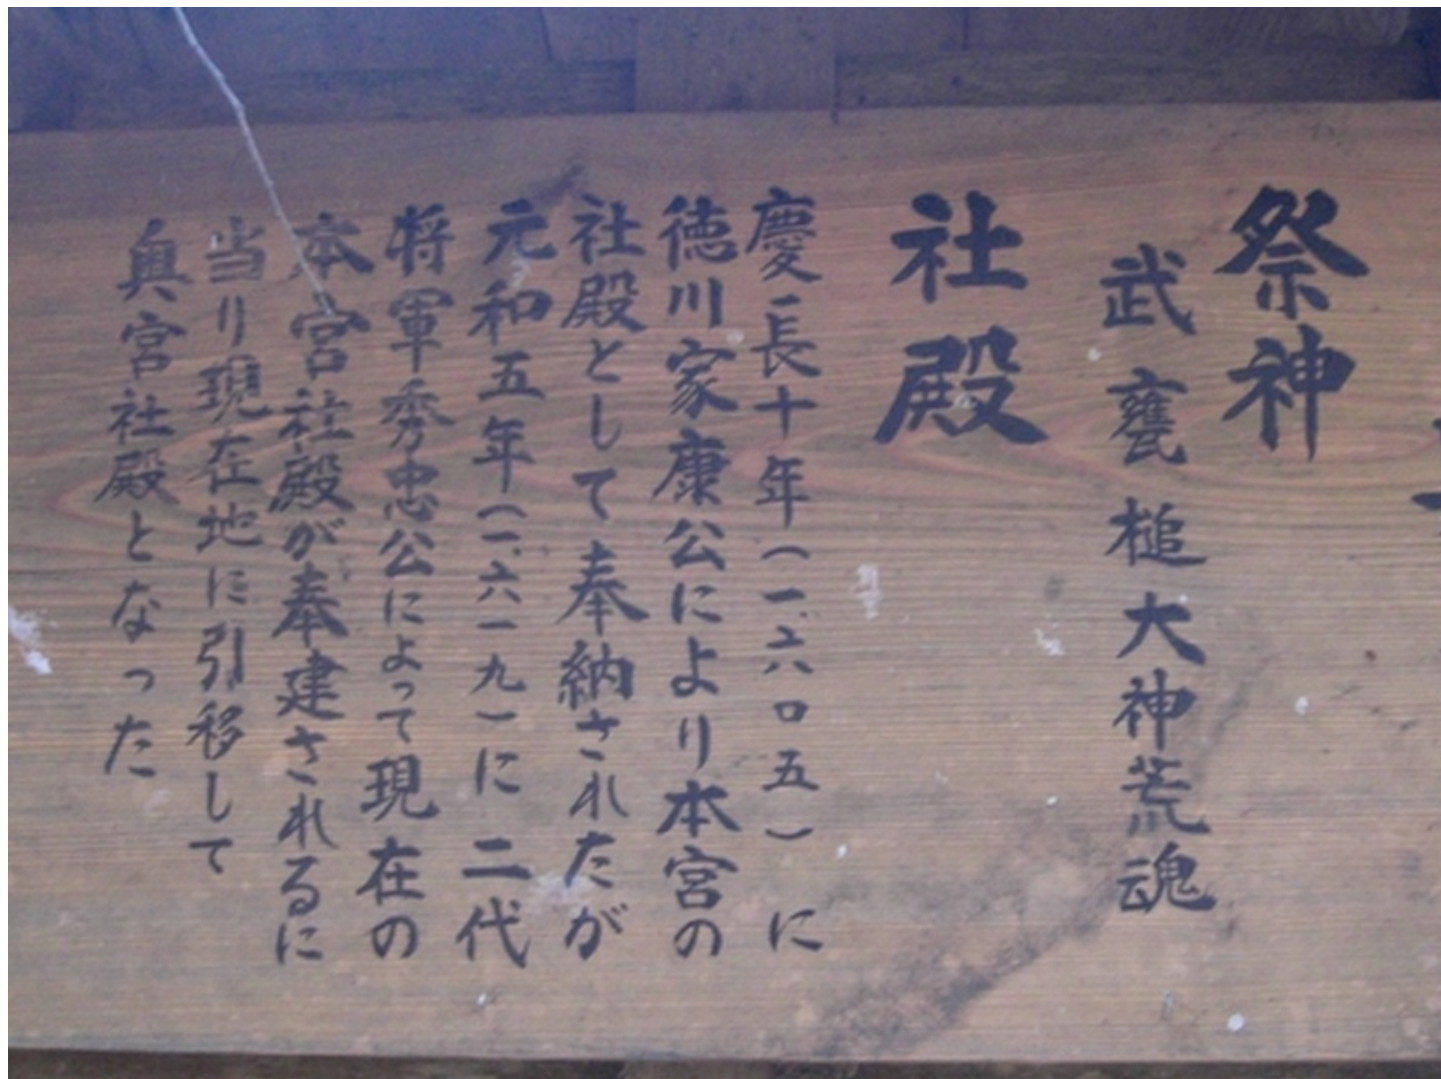 祭神
武甕槌大神荒魂
社殿
慶長十年（一六〇五）に
徳川家康公により本宮の
社殿として奉納されたが
元和五年（一六一九）に二代
将軍秀忠公によって現在の
本宮社殿が奉建されるに
当り現在地に引移して
奥宮社殿となった